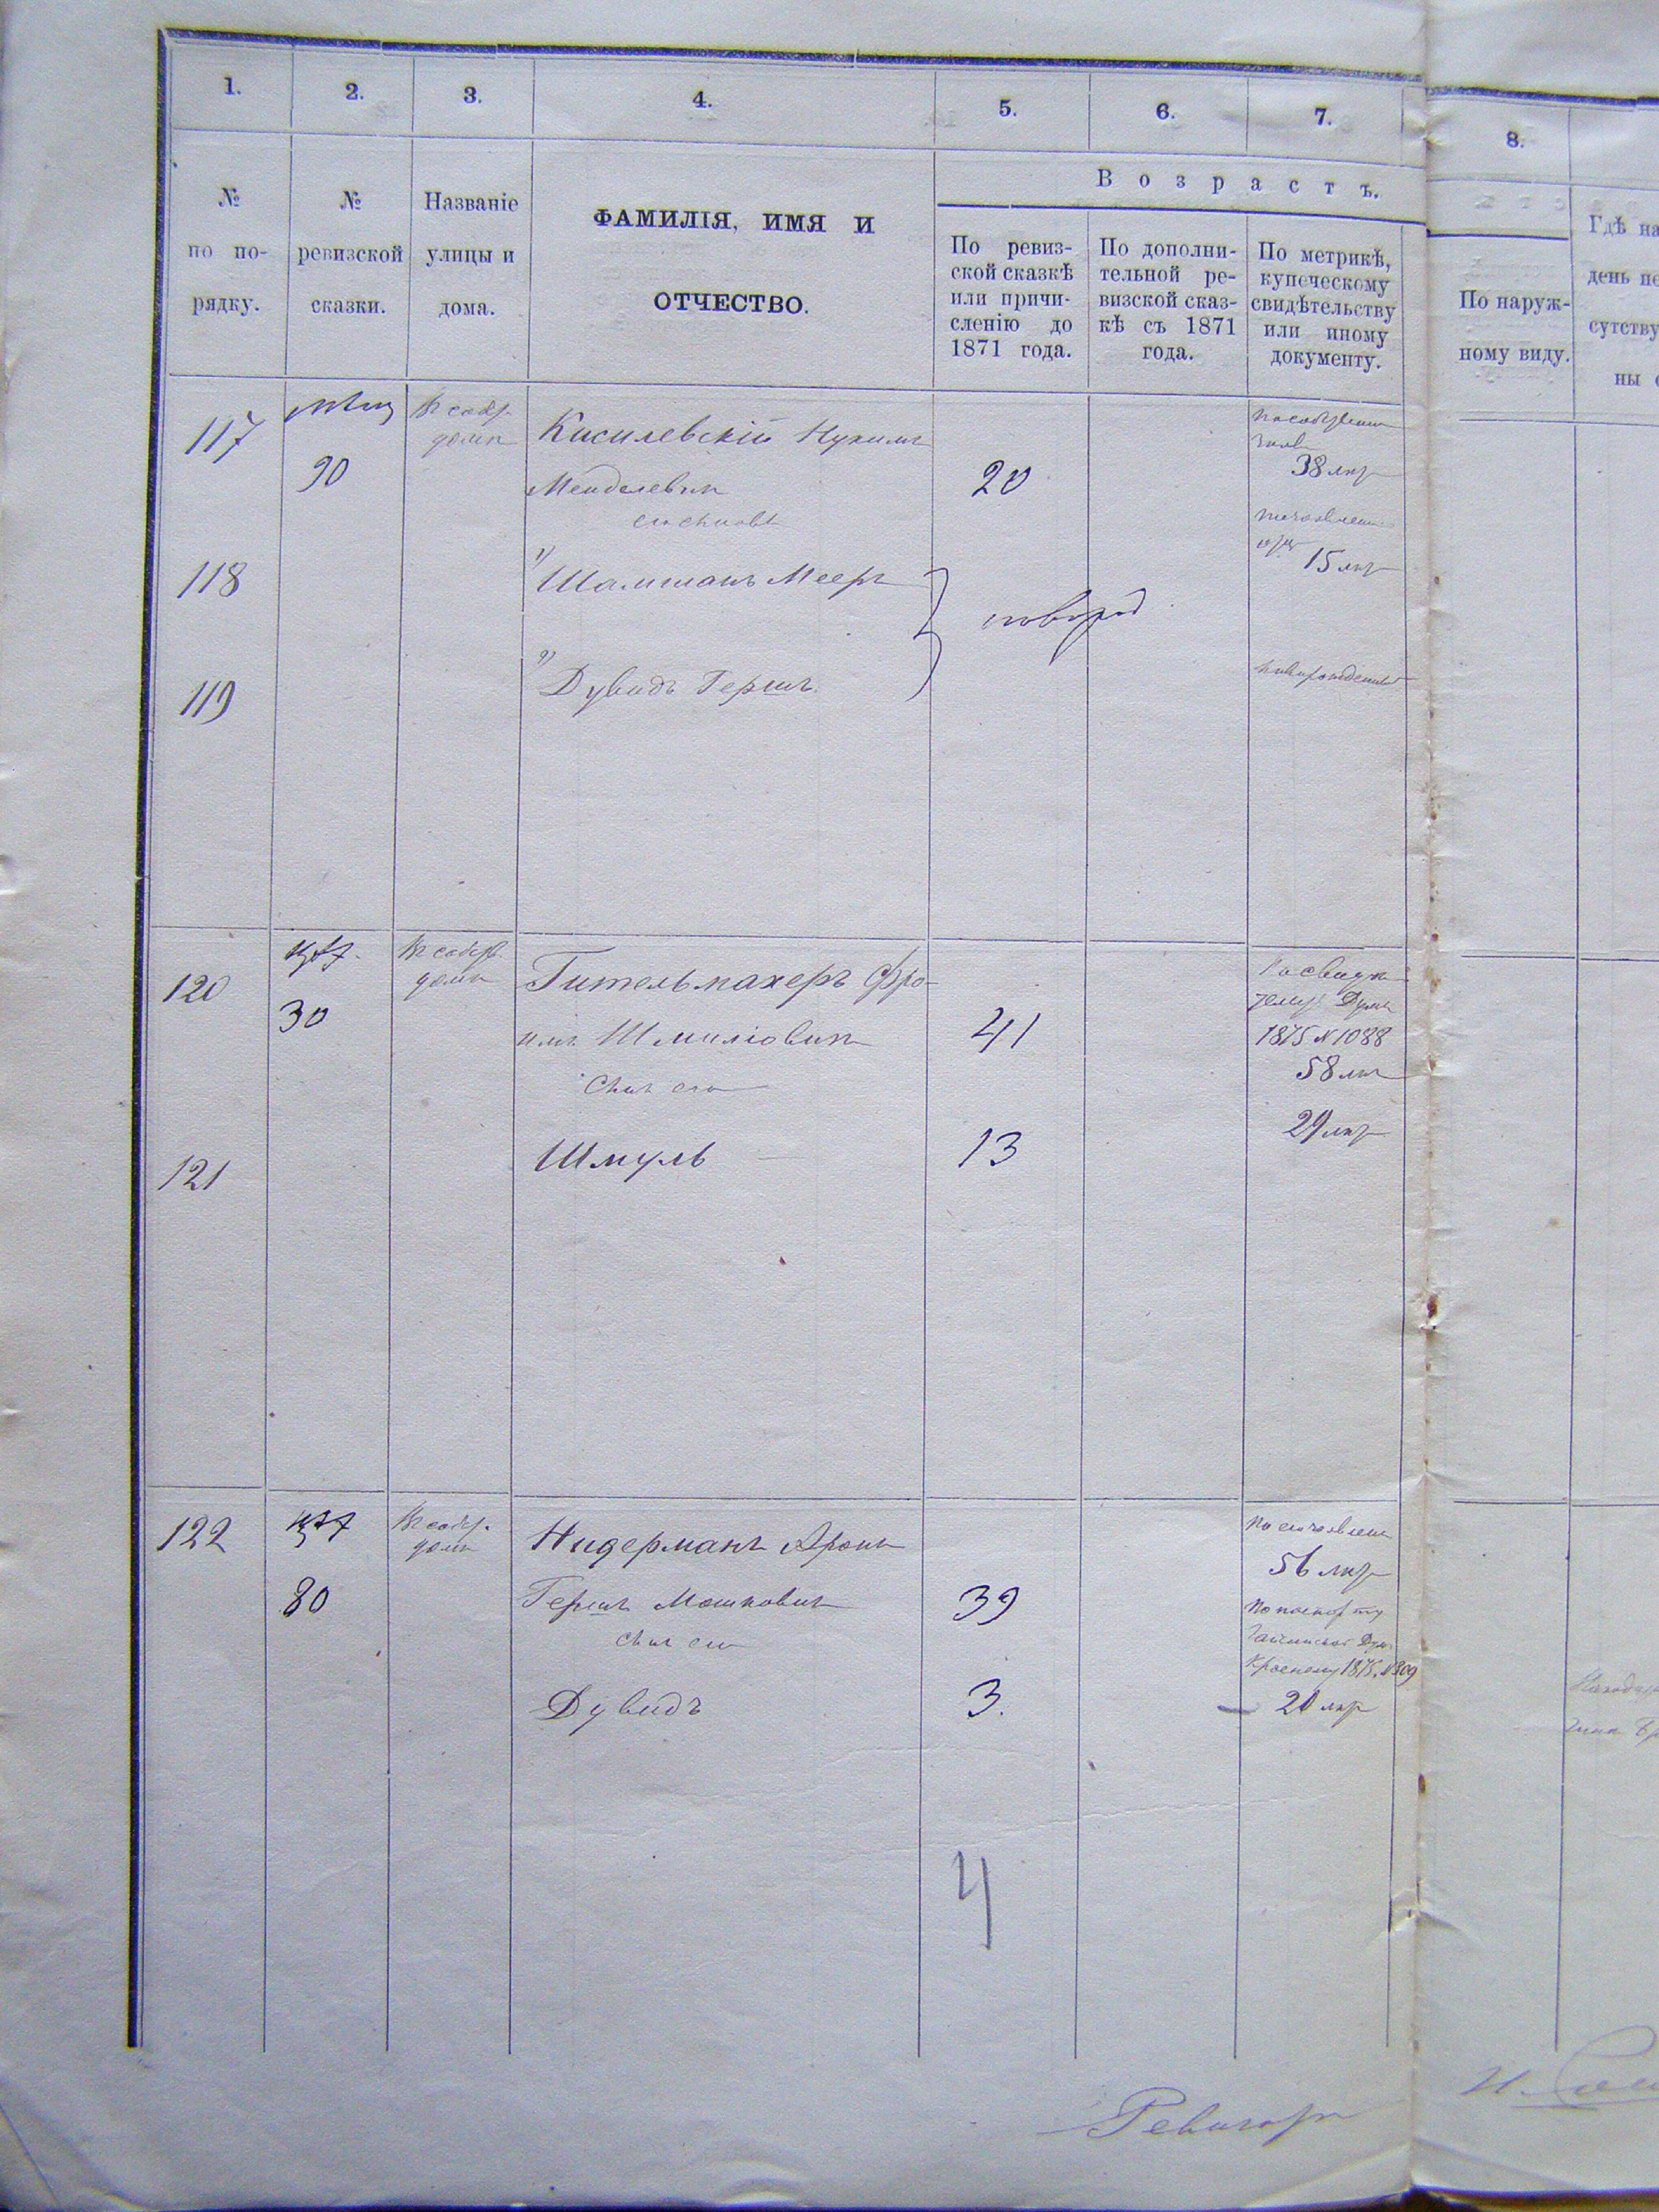 1. 2. 3. 4. 5. 6. 7. 8.
№ по по-рядку.
№ ревизской сказки.
Названіе улицы и дома.
ФАМИЛІЯ, ИМЯ И
ОТЧЕСТВО.
Возрастъ.
По ревиз-
ской сказкѣ
или причи-
сленію до
1871 года.
По дополни-
тельной ре-
визской сказ-
кѣ съ 1871
года.
По метрикѣ,
купеческому
свидѣтельству
или иному
документу.
По наруж-
ному виду.
Гдѣ на
день
сутству
ны
117
90
Въ собс.
домѣ
Кисилевскій Нухимъ
Менделевичъ
20
его сыновья
38 лѣтъ
118
1) Шамшанъ Мееръ
новорож
15 лѣтъ
119
2) Дувидъ Гершъ
новорожденный
120
30
Въ собств.
домѣ
Гительмахеръ Фро-
имъ Шмиліовичъ
41
1875 № 1088
58 лѣтъ
Сынъ его
121
Шмуль
13
29 лѣтъ
122
80
Въ собс.
домѣ
Нидерманъ Аронъ
Гершъ Мошковичъ
39
56 лѣтъ
По паспорту
1875. № 309
Сынъ его
Дувидъ
3.
20 лѣтъ
4